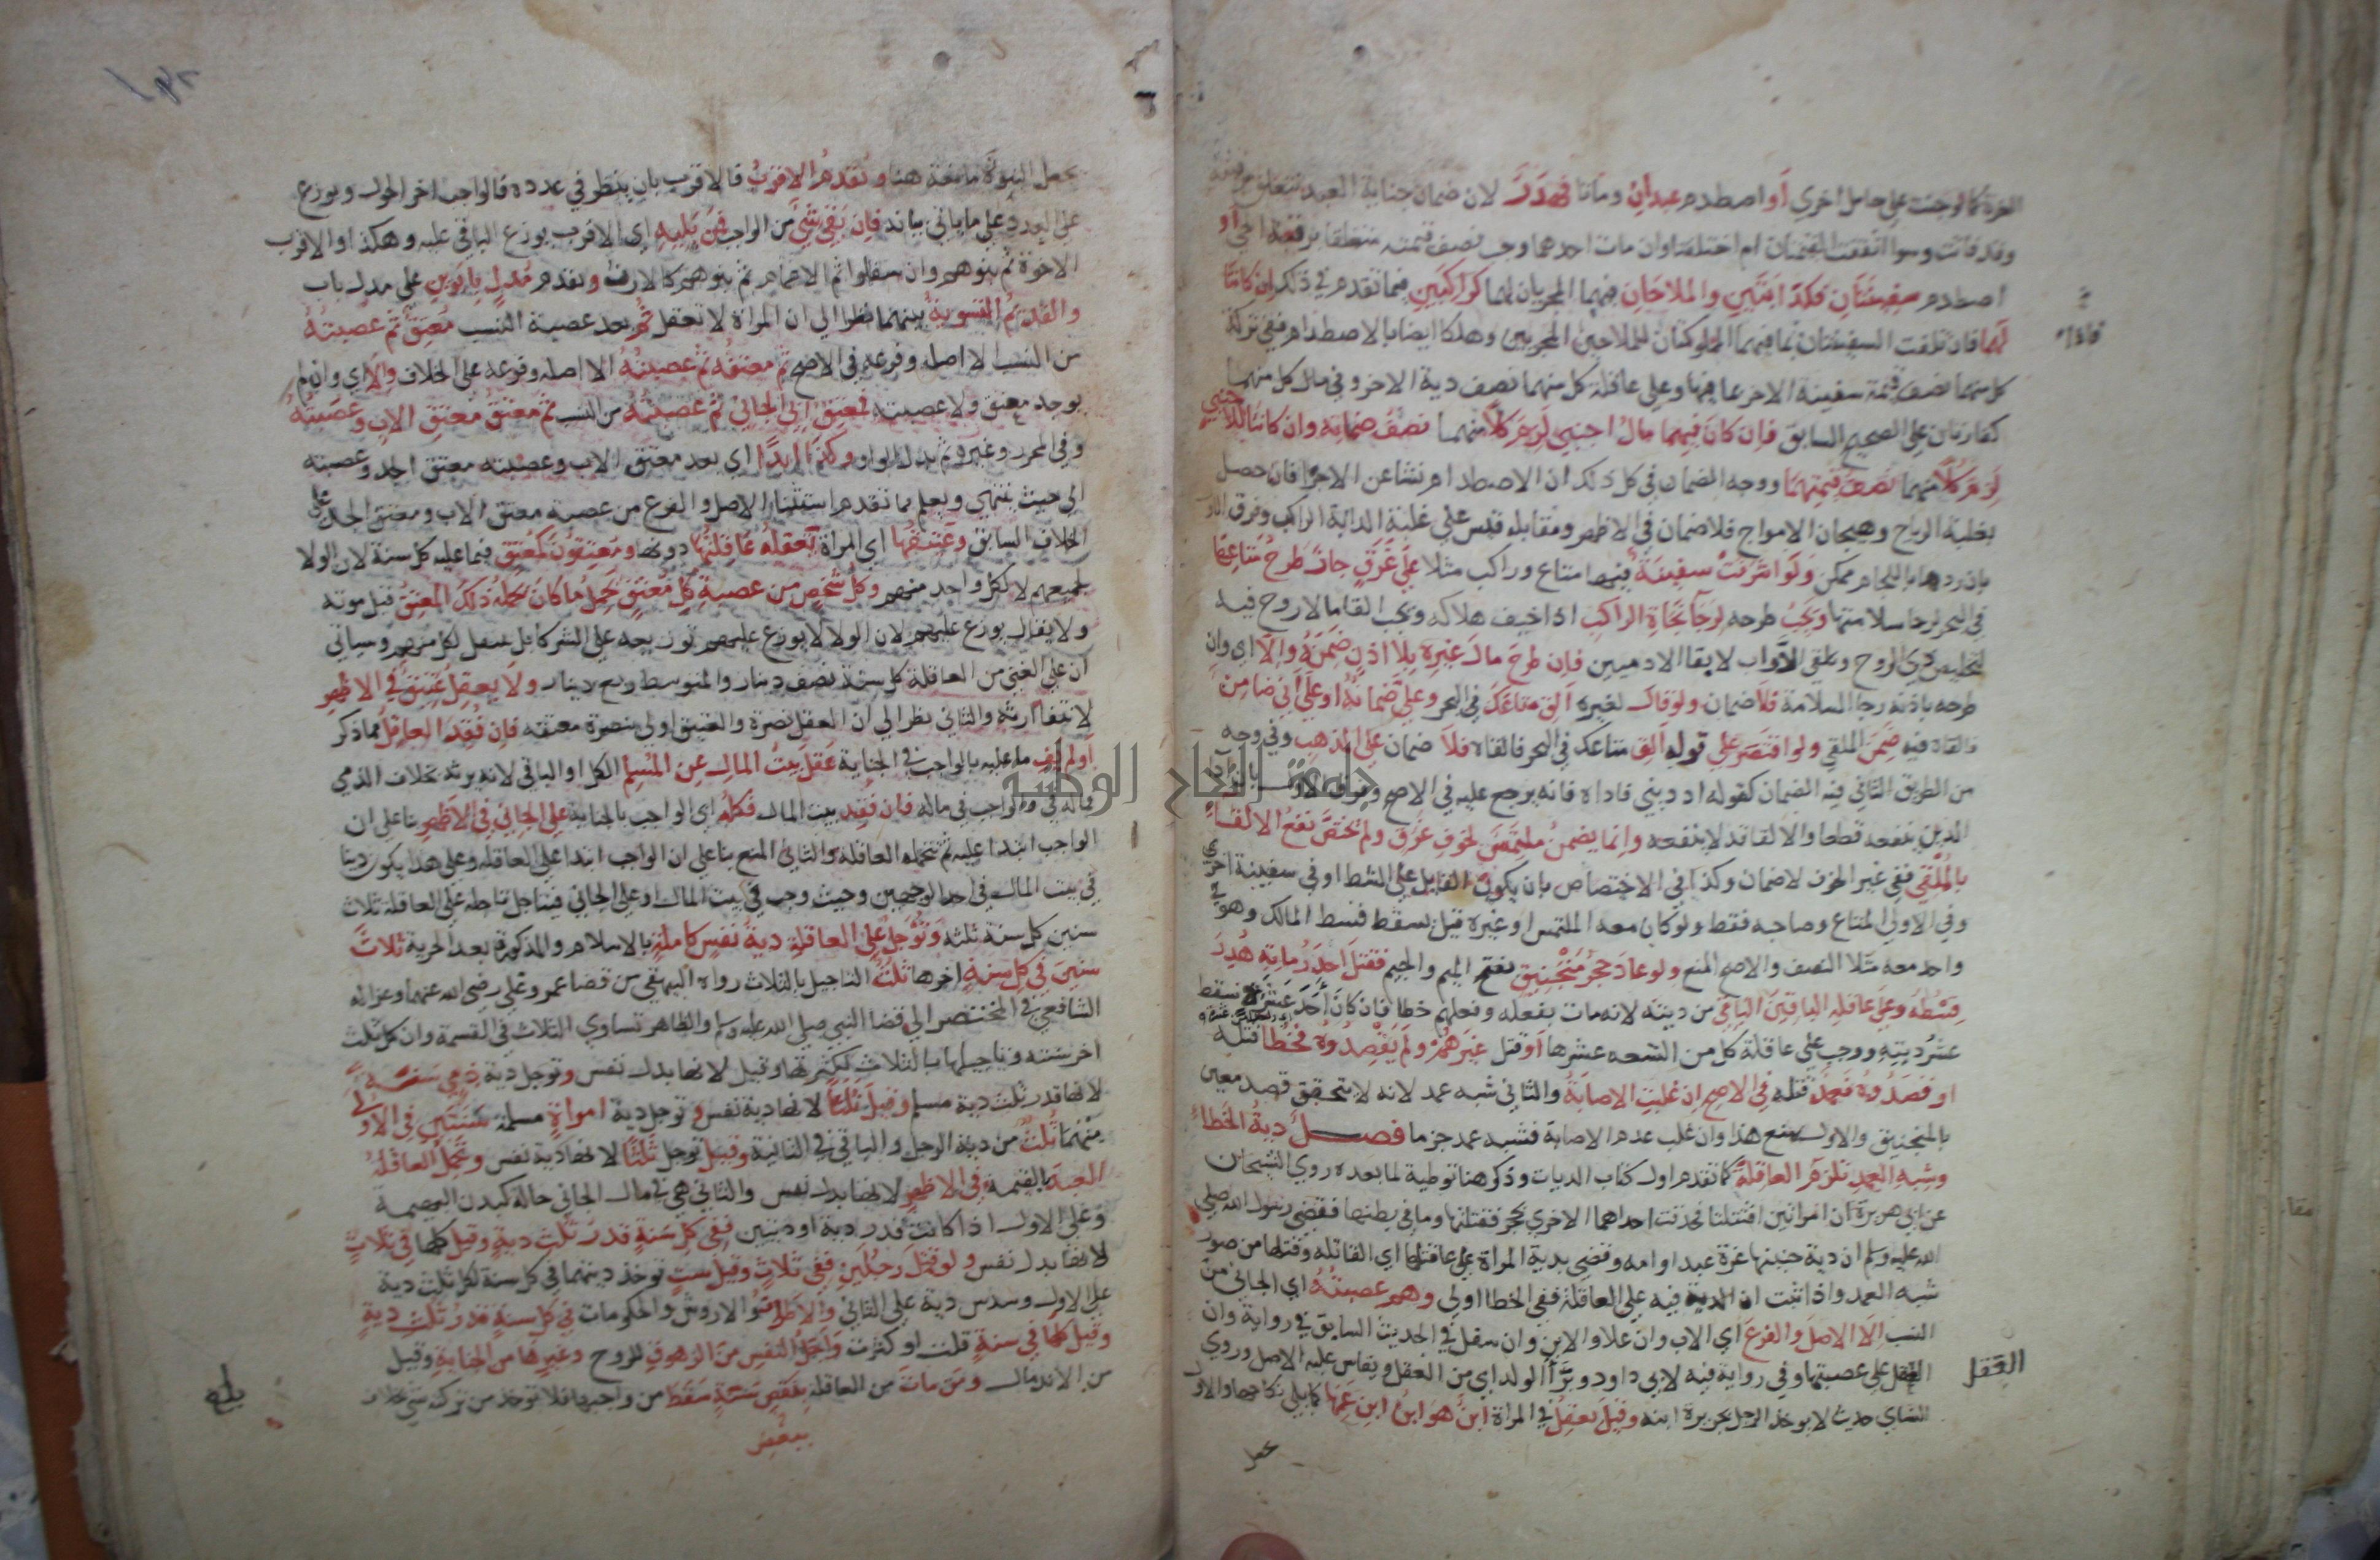 الحرة كما لو جنت على حامل اخرى أو اصطدم عبدان وماتا فهدر لان ضمان جناية العبد تتعلق برقبته
وقد فاتت وسوا اتفقت القيمتان ام اختلفتا وان مات احدهما وجب نصف قيمته متعلقا برقبة الحي أو
اصطدم سفينتان فكدابتين والملاحان فيهما المجريان لهما كراكبين فيما تقدم في ذلك ان كانتا
لهما فان تلفت السفينتان بما فيهما المملوكتان للملاحين المجريين وهلكا ايضا بالاصطدام ففي تركة
كل منهما نصف قيمة سفينة الاخر بما فيها وعلى عاقلة كل منهما نصف دية الاخر وفي مال كل منهما
كفارتان على الصحيح السابق فإن كان فيهما مال اجنبي لزم كلا منهما نصف ضمانه وان كانتا لاجنبي
لزم كلا منهما نصف قيمتهما ووجه الضمان في كل ذلك ان الاصطدام نشا عن الاجرا فان حصل
بغلبة الرياح وهيجان الامواج فلا ضمان في الاظهر ومقابله قيس على غلبة الدابة الراكب وفرق الاول
بان ردها باللجام ممكن ولو اشرفت سفينة فيها متاع وراكب مثلا على غرق جاز طرح متاعها
في البحر لرجا سلامتها ويجب طرحه لرجا نجاة الراكب اذا خيف هلاكه ويجب القا ما لا روح فيه
لتخليص ذي الروح وتلقى الدواب لابقا الادميين فإن طرح مال غيره بلا اذن ضمنه والا اي وان
طرحه باذنه رجا السلامة فلا ضمان ولو قال لغيره الق متاعك في البحر وعلي ضمانه او على أني ضامن
فالقاه فيه ضمن الملقي ولو اقتصر على قوله الق متاعك في البحر فالقاه فلا ضمان على المذهب وفي وجه
من الطريق الثاني فيه الضمان كقوله اد ديني فاداه فانه يرجع عليه في الاصح وفرق الاول بان ادا
الدين ينفعه قطعا والالقا قد لا ينفعه وانما يضمن ملتمس لخوف غرق ولم يختص نفع الالقاء
بالملقي ففي غير الخوف لا ضمان وكذا في الاختصاص بان يكون القايل على الشط او في سفينة اخرى
وفي الاولى المتاع وصاحبه فقط ولو كان معه الملتمس او غيره قيل يسقط قسط المالك وهو
واحد معه مثلا النصف والاصح المنع ولو عاد حجر منجنيق بفتح الميم والجيم فقتل أحد رماته هدر
قسطه وعلى عاقلة الباقين الباقي من ديته لانه مات بفعله وفعلهم خطا فان كان أحد عشرة سقط
عشر ديته ووجب على عاقلة كل من التسعه عشرها أو قتل غيرهم ولم يقصدوه فخطا قتله
او قصدوه فعمد قتله في الاصح ان غلبت الاصابة والثاني شبه عمد لانه لا يتحقق قصد معين
بالمنجنيق والاول يمنع هذا وان غلب عدم الاصابة فشبه عمد جزما فصل دية الخطأ
وشبه العمد تلزم العاقلة كما تقدم اول كتاب الديات وذكر هنا توطية لما بعده روى الشيخان
عن ابي هريرة ان امراتين اقتتلتا فحذفت احداهما الاخرى بحجر فقتلتها وما في بطنها فقضى رسول الله صلى
الله عليه وسلم ان دية جنينها غرة عبد او امه وقضى بدية المراة على عاقلتها اي القاتله وقتلها من صور
شبه العمد واذا ثبت ان الدية فيه على العاقلة ففي الخطا اولى وهم عصبته اي الجاني من
النسب الا الاصل والفرع اي الاب وان علا والابن وان سفل في الحديث السابق في رواية وان
العقل على عصبتها وفي رواية فيه لابي داود وبرأ الولد اي من العقل ويقاس عليه الاصل وروى
النساي حديث لا يوخذ الرجل بجريرة ابنه وقيل يعقل في المراة ابن هو ابن ابن عمها كما يلي نكاحها والاول
العقل
يجعل البنوة مانعة هنا ويقدم الاقرب فالاقرب بان ينظر في عدده فالواجب اخر الحول ويوزع
على العدد على ما ياتي بيانه فان بقي شي من الواجب فمن يليه اي الاقرب يوزع الباقي عليه وهكذا والاقرب
الاخوة ثم بنوهم وان سفلوا ثم الاعمام ثم بنوهم كالارث ويقدم مدل بابوين على مدل باب
والقديم التسوية بينهما نظرا الى ان المراة لا تعقل ثم بعد عصبة النسب معتق ثم عصبته
من النسب الا اصله وفرعه في الاصح ثم معتقه ثم عصبته الا اصله وفرعه على الخلاف والا اي وان لم
يوجد معتق ولا عصبته فمعتق ابي الجاني ثم عصبته من النسب ثم معتق معتق الاب وعصبته
وفي المحرر وغيره ثم بدل الواو وكذا ابدا اي بعد معتق الاب وعصبته معتق الجد وعصبته
الى حيث ينتهي ويعلم مما تقدم استثنا الاصل والفرع من عصبة معتق الاب ومعتق الجد على
الخلاف السابق وعتيقها اي المراة يعقله عاقلتها دونها ومعتقون كمعتق فيما عليه كل سنة لان الولا
لجميعهم لا لكل واحد منهم وكل شخص من عصبة كل معتق يحمل ما كان يحمله ذلك المعتق قبل موته
ولا يقال يوزع عليهم لان الولا لا يوزع عليهم توزيعه على الشركا بل ينتقل لكل منهم وسياتي
ان على الغني من العاقلة كل سنة نصف دينار والمتوسط ربع دينار ولا يعقل عتيق في الاظهر
لانتفا ارثه والثاني نظر الى ان العقل نصرة والعتيق اولى بنصرة معتقه فان فقد العاقل مما ذكر
أو لم يف ما عليه بالواجب في الجناية عقل بيت المال عن المسلم الكل او الباقي لانه يرثه بخلاف الذمي
فماله في والواجب في ماله فان فقد بيت المال فكله اي الواجب بالجناية على الجاني في الاظهر بنا على ان
الواجب ابتدا عليه ثم تتحمله العاقلة والثاني المنع بنا على ان الواجب ابتدا على العاقله وعلى هذا يكون دينا
في بيت المال في احد الوجهين وحيث وجب في بيت المال او على الجاني فيتاجل تاجله على العاقلة ثلاث
سنين كل سنة ثلثه وتؤجل على العاقلة دية نفس كاملة بالاسلام والمذكورة بعد الحرية ثلاث
سنين في كل سنة اخرها ثلث التاجيل بالثلاث رواه البيهقي من قضا عمر وعلي رضي الله عنهما وعزاه
الشافعي في المختصر الى قضا النبي صلى الله عليه وسلم والظاهر تساوي الثلاث في القسمة وان كل ثلث
اخر سنته وتاجيلها بالثلاث لكثرتها وقيل لانها بدل نفس وتوجل دية ذمي سنة
لانها قدر ثلث دية مسلم وقيل ثلاثا لانها دية نفس وتوجل دية امراة مسلمة سنتين في الاولى
منهما ثلث من دية الرجل والباقي في الثانية وقيل توجل ثلاثا لانها دية نفس وتحمل العاقلة
العبد بالقيمة في الاظهر لانها بدل نفس والثاني هي في مال الجاني حالة كبدل البهيمة
وعلى الاول اذا كانت قدر دية او ديتين ففي كل سنة قدر ثلث دية وقيل كلها في ثلاث
لانها بدل نفس ولو قتل رجلين ففي ثلاث وقيل ست توخذ ديتهما في كل سنة لكل ثلث دية
على الاول وسدس دية على الثاني والاطراف والاروش والحكومات في كل سنة قدر ثلث دية
وقيل كلها في سنة قلت او كثرت وأجل النفس من الزهوق للروح وغيرها من الجناية وقيل
من الاندمال ومن مات من العاقلة ببعض سنة سقط من واجبها فلا توخذ من تركته شي بخلاف
ببعض
بلغ
جامعة النجاح الوطنية